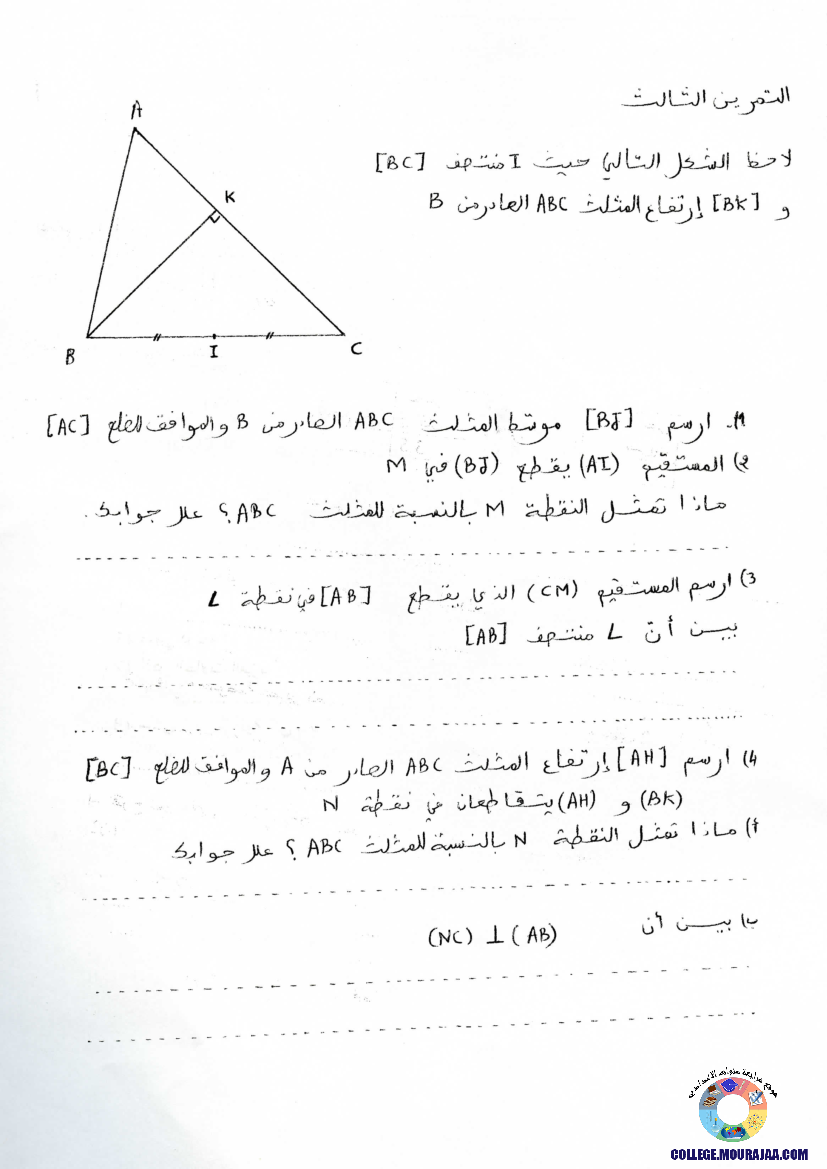 التمرين الثالث
لاحظ الشكل التالي حيث I منتصف [BC]
و [BK] إرتفاع المثلث ABC الصادر من B
A
K
B
I
C
1. ارسم [BJ] موسط المثلث ABC الصادر من B والموافق للضلع [AC]
2) المستقيم (AI) يقطع (BJ) في M
ماذا تمثل النقطة M بالنسبة للمثلث ABC؟ علل جوابك.
3) ارسم المستقيم (CM) الذي يقطع [AB] في نقطة L
بين أنّ L منتصف [AB]
4) ارسم [AH] إرتفاع المثلث ABC الصادر من A والموافق للضلع [BC]
(BK) و (AH) يتقاطعان في نقطة N
أ) ماذا تمثل النقطة N بالنسبة للمثلث ABC؟ علل جوابك
ب) بين أن (NC) ⊥ (AB)
COLLEGE.MOURAJAA.COM